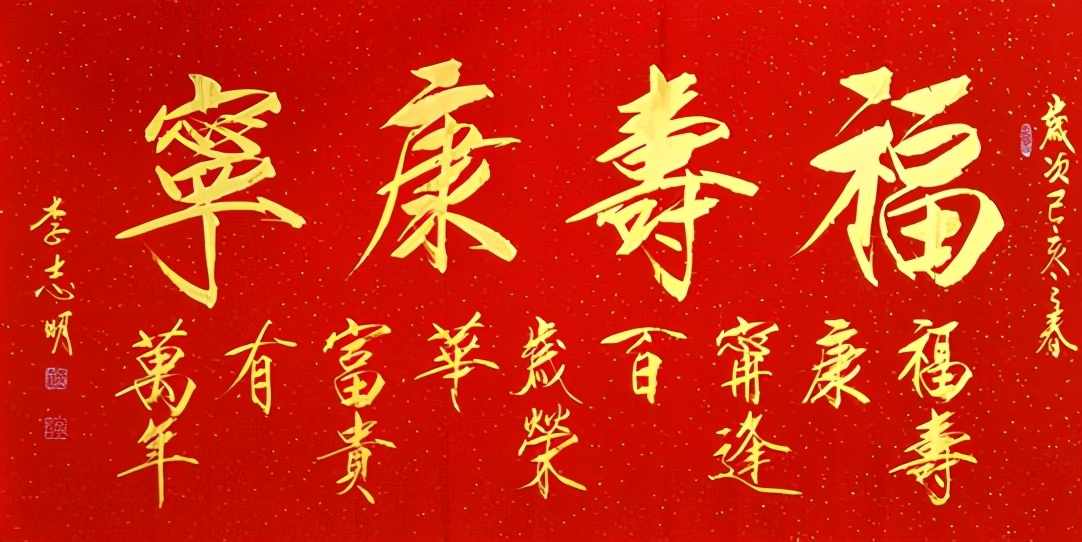 歲次己亥之春
福壽康寧
福壽康甯逢百歲榮華富貴有萬年
李志明